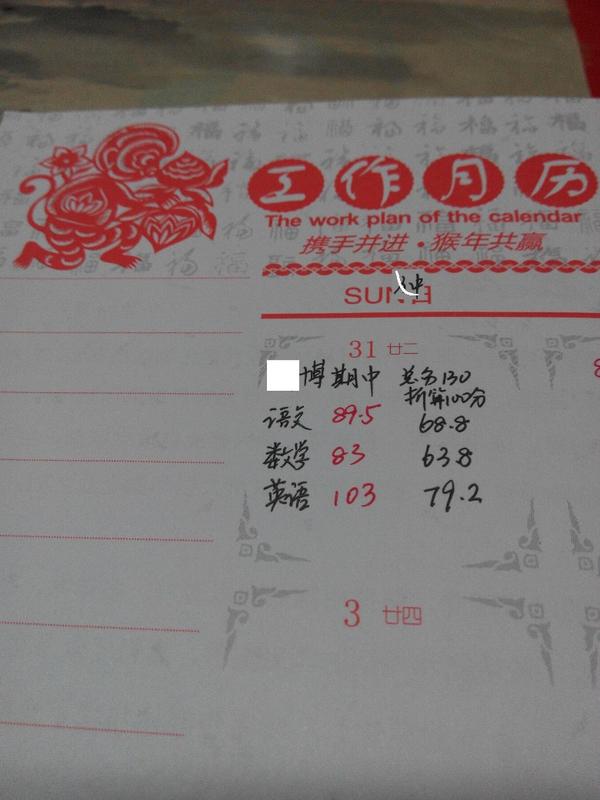 工作月历
The work plan of the calendar
携手并进·猴年共赢
SUN.日
31 廿二
博期中 总分130
折算100分
语文 89.5 68.8
数学 83 63.8
英语 103 79.2
3 廿四